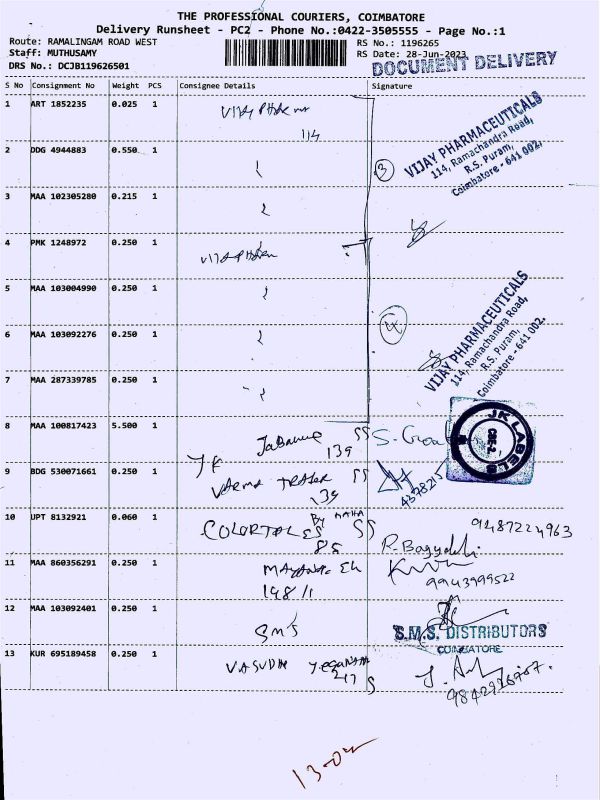 THE PROFESSIONAL COURIERS, COIMBATORE
Delivery Runsheet - PC2 - Phone No.:0422-3505555 - Page No.:1
Route: RAMALINGAM ROAD WEST RS No.: 1196265
Staff: MUTHUSAMY RS Date: 28-Jun-2023
DRS No.: DCJB119626501 DOCUMENT DELIVERY
S No Consignment No Weight PCS Consignee Details Signature
1 ART 1852235 0.025 1
114
VIJAY PHARMACEUTICALS
114, Ramachandra Road,
R.S. Puram,
Coimbatore - 641 002.
2 DDG 4944883 0.550 1 3
3 MAA 102305280 0.215 1
4 PMK 1248972 0.250 1
5 MAA 103004990 0.250 1
6 MAA 103092276 0.250 1 4
VIJAY PHARMACEUTICALS
114, Ramachandra Road,
R.S. Puram,
Coimbatore - 641 002.
7 MAA 287339785 0.250 1
8 MAA 100817423 5.500 1 JK SS
139
JK LABELS
CBE-2.
9 BDG 530071661 0.250 1 VARMA SS
139
4378215
10 UPT 8132921 0.060 1 SS
85
9487224963
11 MAA 860356291 0.250 1
198/1
9943999522
12 MAA 103092401 0.250 1 SMS
S.M.S. DISTRIBUTORS
COIMBATORE
13 KUR 695189458 0.250 1 VASUDHA
217 S
13-02